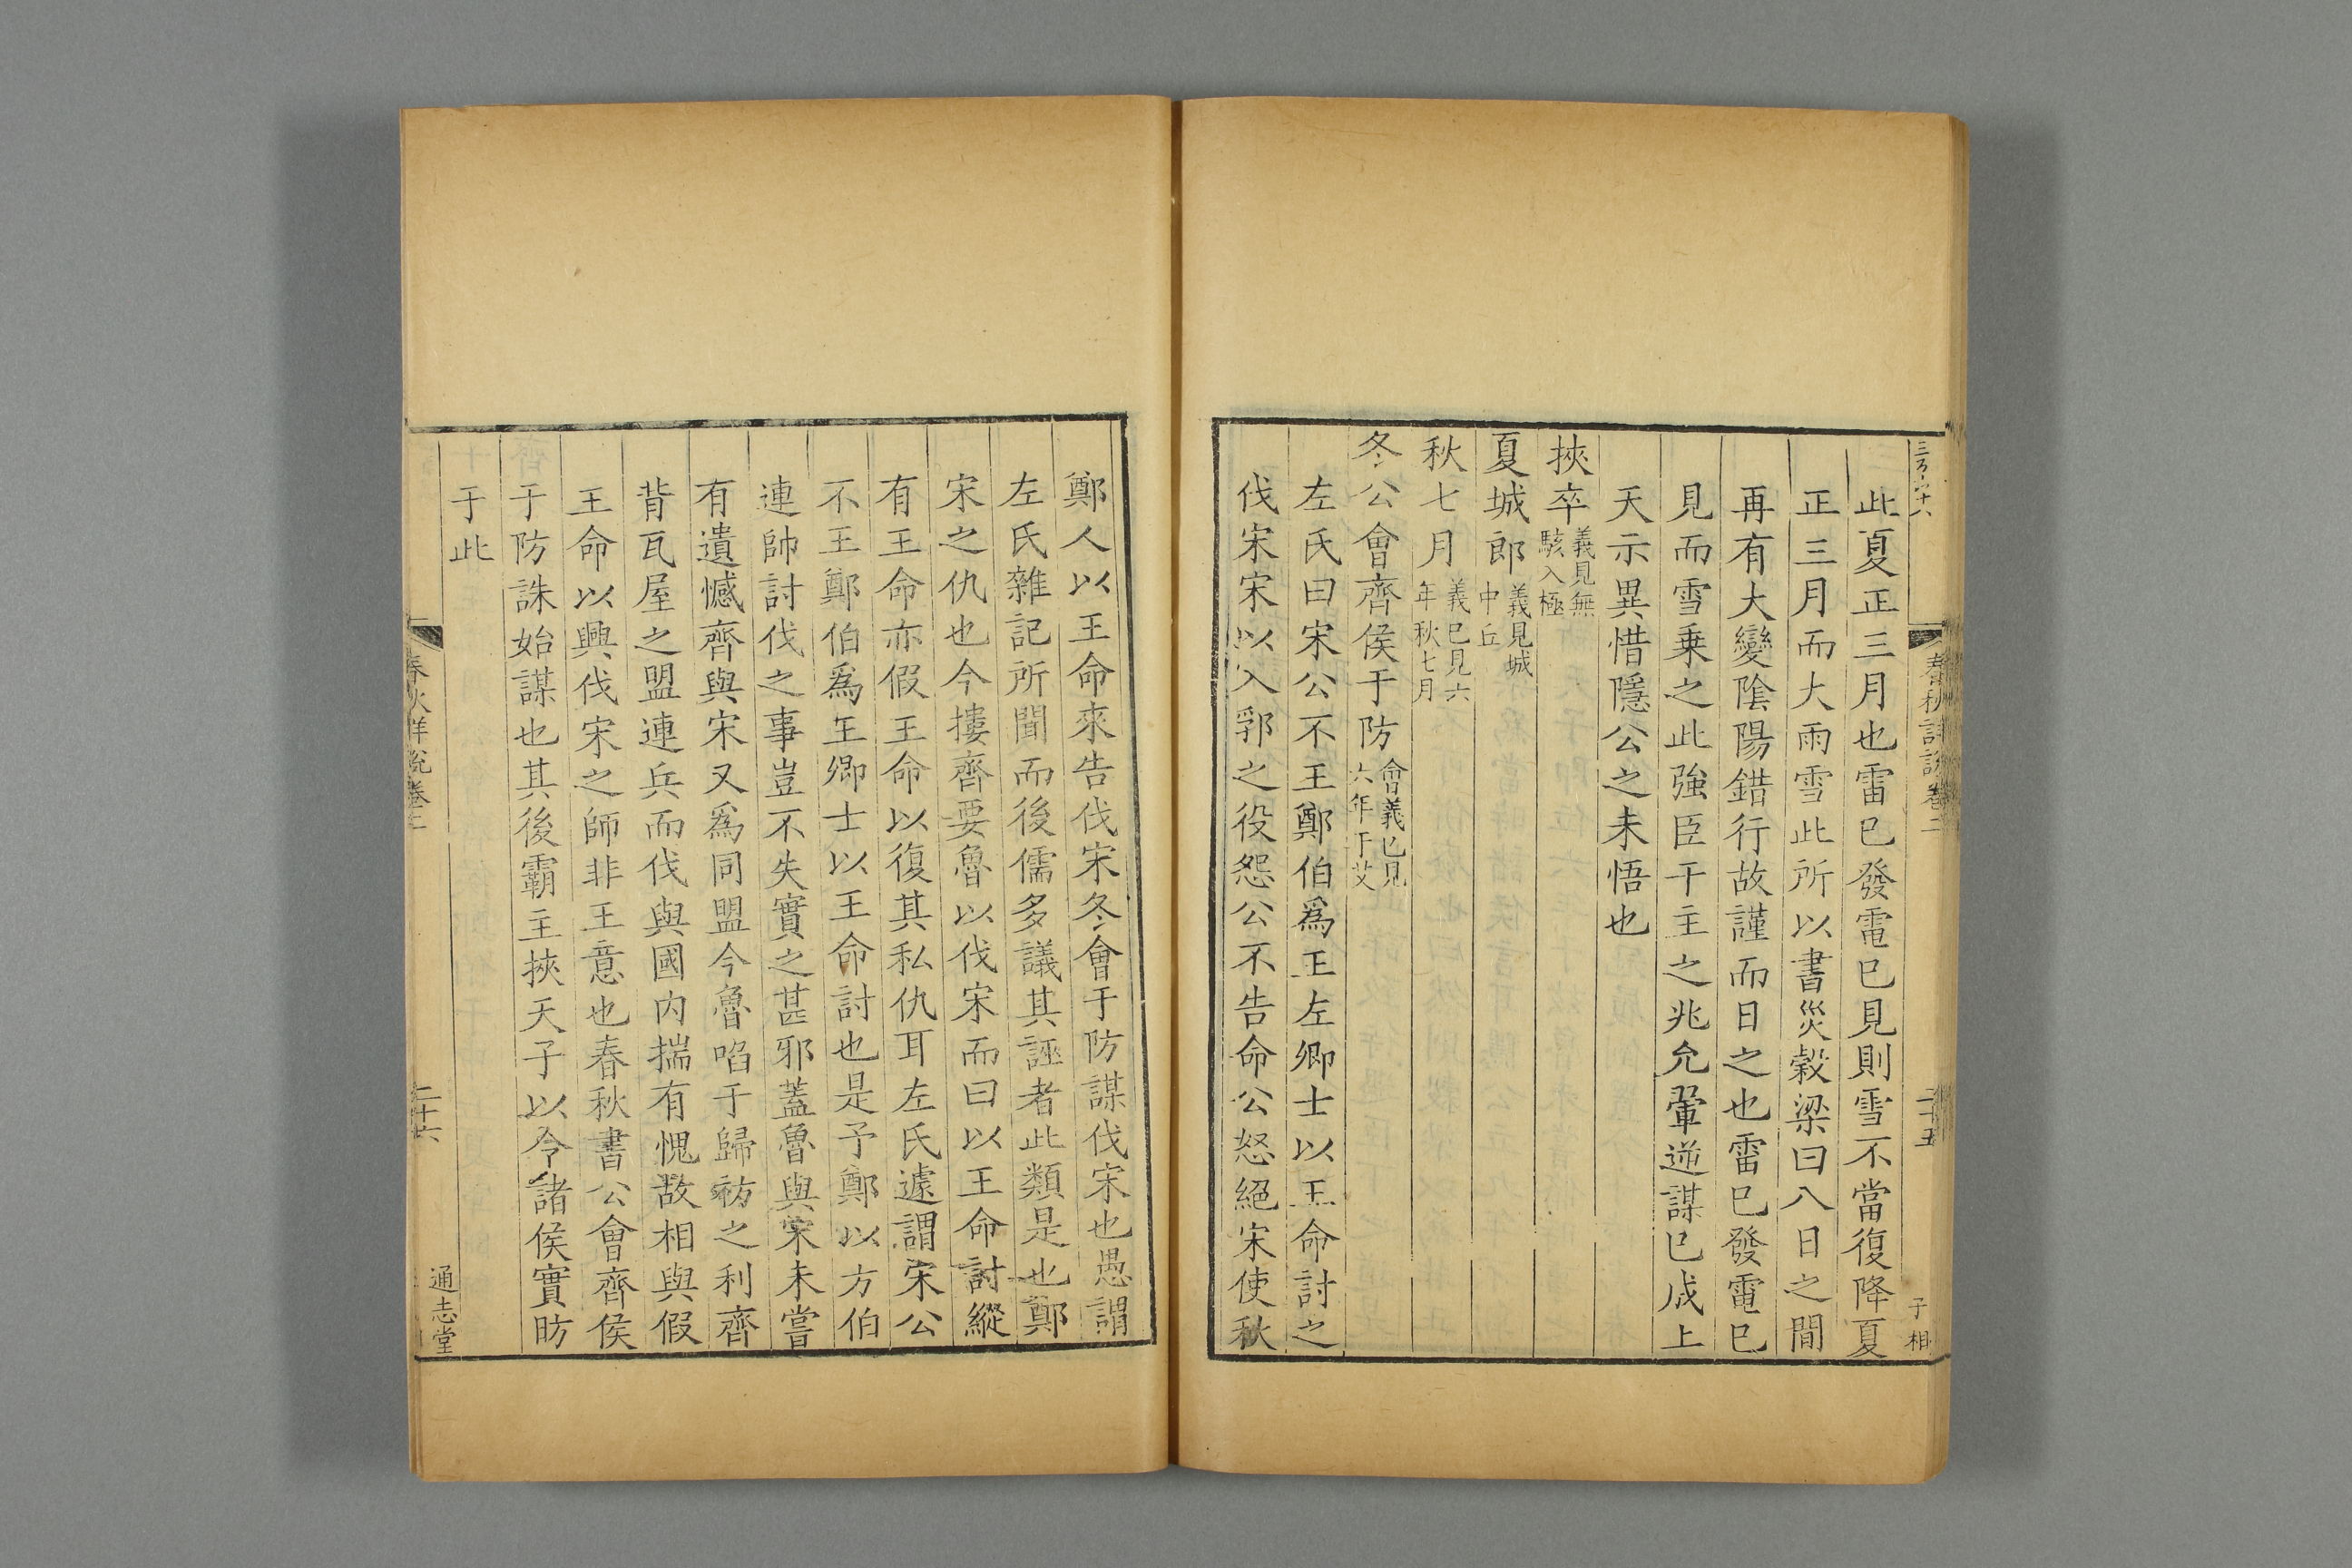 春秋詳說卷二
二十五
子相
此夏正三月也雷已發電已見則雪不當復降夏
正三月而大雨雪此所以書災穀梁曰八日之間
再有大變陰陽錯行故謹而日之也雷已發電已
見而雪乗之此強臣干主之兆允翬逆謀已成上
天示異惜隱公之未悟也
挾卒義見無駭入極
夏城郎義見城中丘
秋七月義已見六年秋七月
冬公會齊侯于防會義已見六年于艾
左氏曰宋公不王鄭伯爲王左卿士以王命討之
伐宋宋以入郛之役怨公不告命公怒絕宋使秋
鄭人以王命來告伐宋冬會于防謀伐宋也愚謂
左氏雜記所聞而後儒多議其誣者此類是也鄭
宋之仇也今摟齊要魯以伐宋而曰以王命討縱
有王命亦假王命以復其私仇耳左氏遽謂宋公
不王鄭伯爲王卿士以王命討也是予鄭以方伯
連帥討伐之事豈不失實之甚邪蓋魯與宋未嘗
有遺憾齊與宋又爲同盟今魯啗于歸祊之利齊
背瓦屋之盟連兵而伐與國内揣有愧故相與假
王命以興伐宋之師非王意也春秋書公會齊侯
于防誅始謀也其後霸主挾天子以令諸侯實昉
于此
春秋詳說卷二
二十六
通志堂